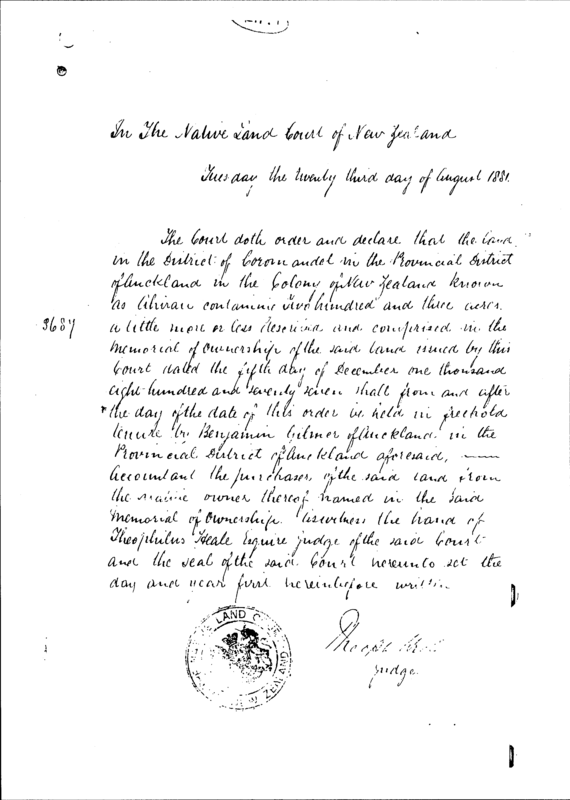 In The Native Land Court of New Zealand
Tuesday the twenty third day of August 1881.
The Court doth order and declare that the Land
in the District of Coromandel in the Provincial District
of Auckland in the Colony of New Zealand known
as containing Two hundred and three acres
3687
a little more or less described and comprised in the
Memorial of Ownership of the said Land issued by this
Court dated the fifth day of December one thousand
eight hundred and seventy seven shall from and after
the day of the date of this order be held in freehold
tenure by Benjamin Gilmer of Auckland in the
Provincial District of Auckland aforesaid,
Accountant the purchaser of the said land from
the native owner thereof named in the said
Memorial of Ownership. As witness the hand of
Theophilus Heale Esquire Judge of the said Court
and the seal of the said Court hereunto set the
day and year first hereinbefore written
NATIVE LAND COURT NEW ZEALAND
Judge